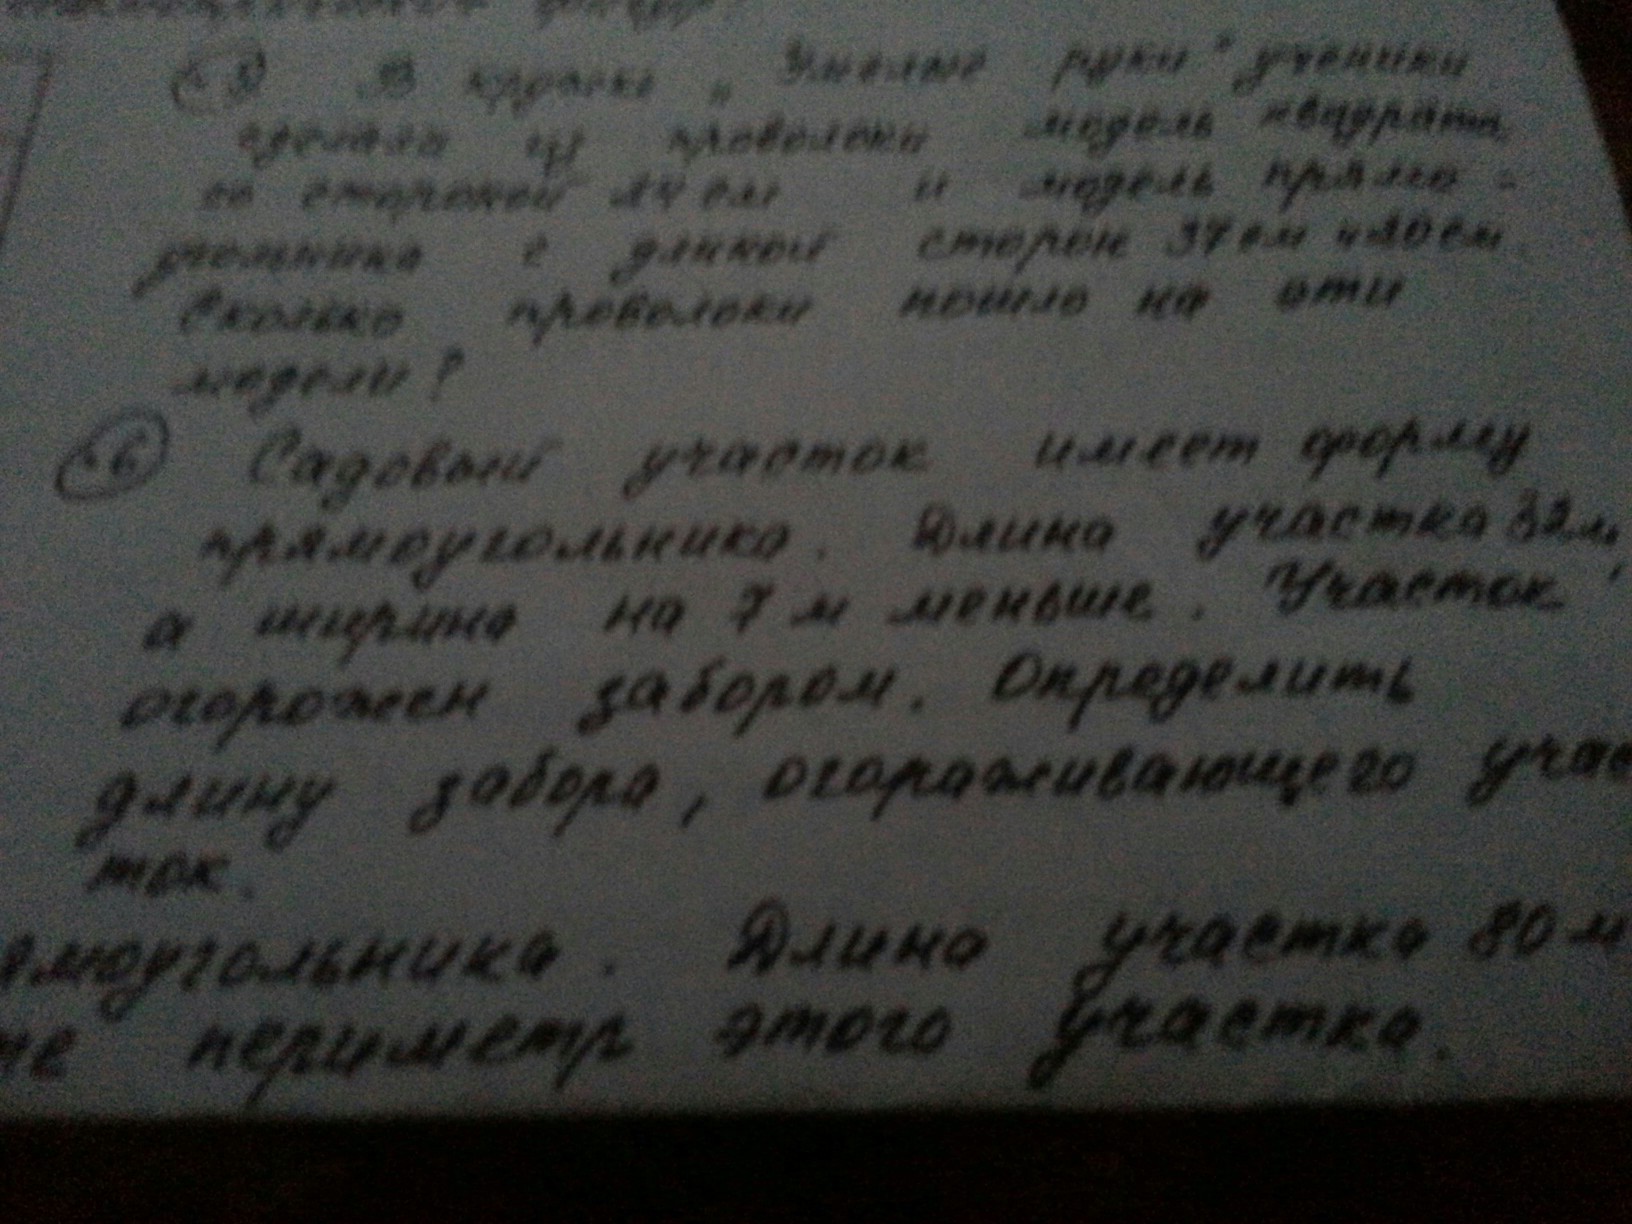 5) В кружке „Умелые руки" ученики
сделали из проволоки модель квадрата
со стороной см и модель прямо-
угольника с длиной сторон 37 см и 20 см.
Сколько проволоки пошло на эти
модели?
6 Садовый участок имеет форму
прямоугольника. Длина участка 32 м,
а ширина на 7 м меньше. Участок
огорожен забором. Определить
длину забора, огораживающего учас
ток.
ямоугольника. Длина участка 80 м
периметр этого участка.